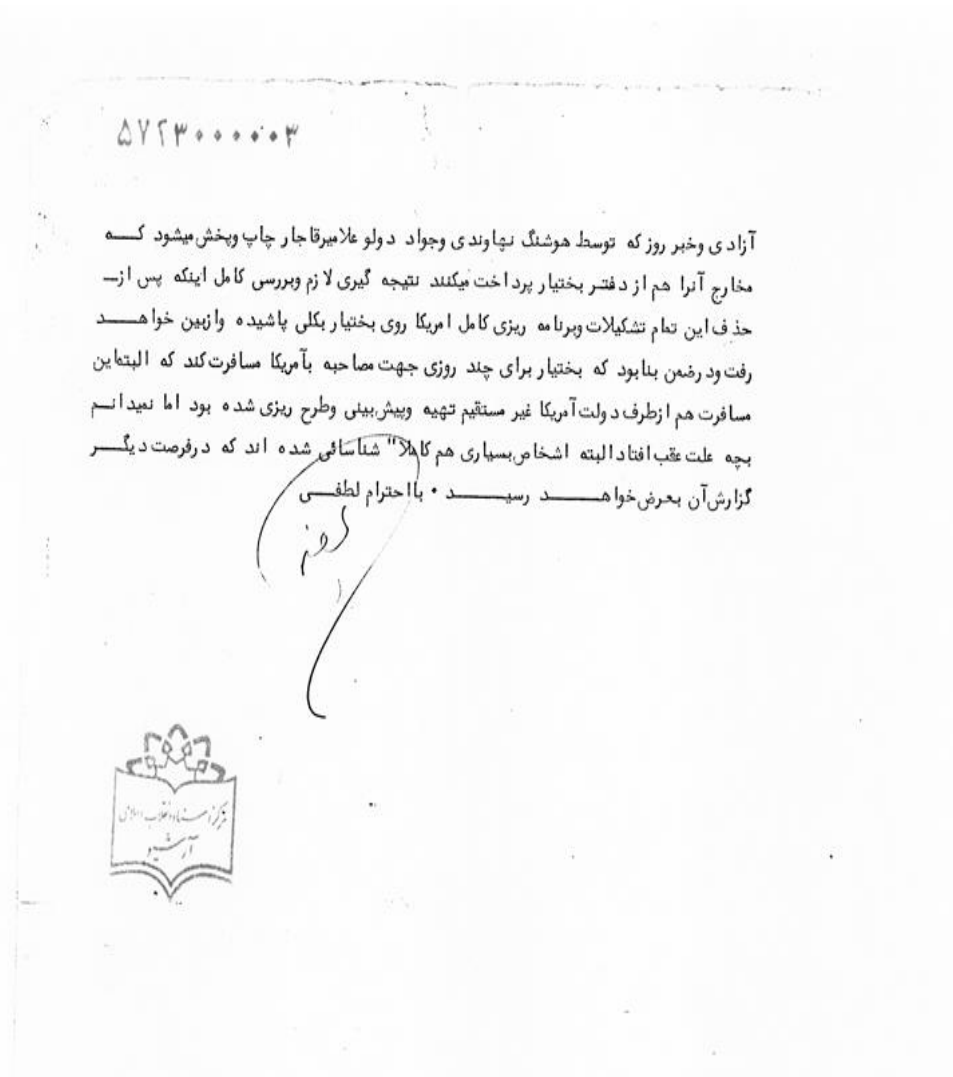 ۵۷۲۳۰۰۰۰۰۳
آزادی وخبر روز که توسط هوشنگ نهاوندی وجواد دولو علامیرقاجار چاپ وپخش میشود کـــه
مخارج آنرا هم از دفتـر بختیار پرداخت میکنند نتیجه گیری لازم وبررسی کامل اینکه پس ازـ
حذف این تمام تشکیلات وبرنامه ریزی کامل امریکا روی بختیار بکلی پاشیده وازبین خواهـــد
رفت ودرضمن بنابود که بختیار برای چند روزی جهت مصاحبه بآمریکا مسافرت کند که البته این
مسافرت هم ازطرف دولت آمریکا غیر مستقیم تهیه وپیش بینی وطرح ریزی شده بود اما نمیدانــم
بچه علت عقب افتاد البته اشخاص بسیاری هم کاملا" شناسائی شده اند که درفرصت دیگــر
گزارش آن بعرض خواهــــــد رسیــــــد ۰ بااحترام لطفـــی
مرکز اسناد انقلاب اسلامی
آرشیو